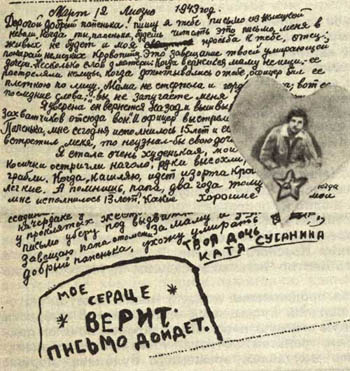 Март, 12 Лиозно 1943 год.
Дорогой добрый папенька! Пишу я тебе письмо из немецкой
неволи. Когда ты, папенька, будешь читать это письмо, меня в
живых не будет и моя просьба к тебе, отец:
покарай немецких кровопийц. Это завещание твоей умирающей
дочери. Несколько слов о матери. Когда вернешься маму не ищи: ее
расстреляли немцы. Когда допытывались о тебе, офицер бил ее
плеткою по лицу. Мама не стерпела и вот ее
последние слова: „вы не запугаете меня
Я уверена он вернется назад и вышвы
захватчиков отсюда вон" И офицер выстрели
Папенька, мне сегодня исполнилось 15 лет и ес
встретил меня, то неузнал-бы свою доч
Я стала очень худенькая, мои
косички остригли наголо, руки высохли,
грабли. Когда, я кашляю, идет изорта кро
легкие. А помнишь, папа, два года тому, когда
мне исполнилося 13 лет, Какие хорошие мои
у проклятых
письмо уберу под
Завещаю папа за маму и
добрый папенька, ухожу умирать
ТВОЯ ДОЧЬ
КАТЯ СУСАНИНА
МОЕ
СЕРДЦЕ
ВЕРИТ.
ПИСЬМО ДОЙДЕТ.